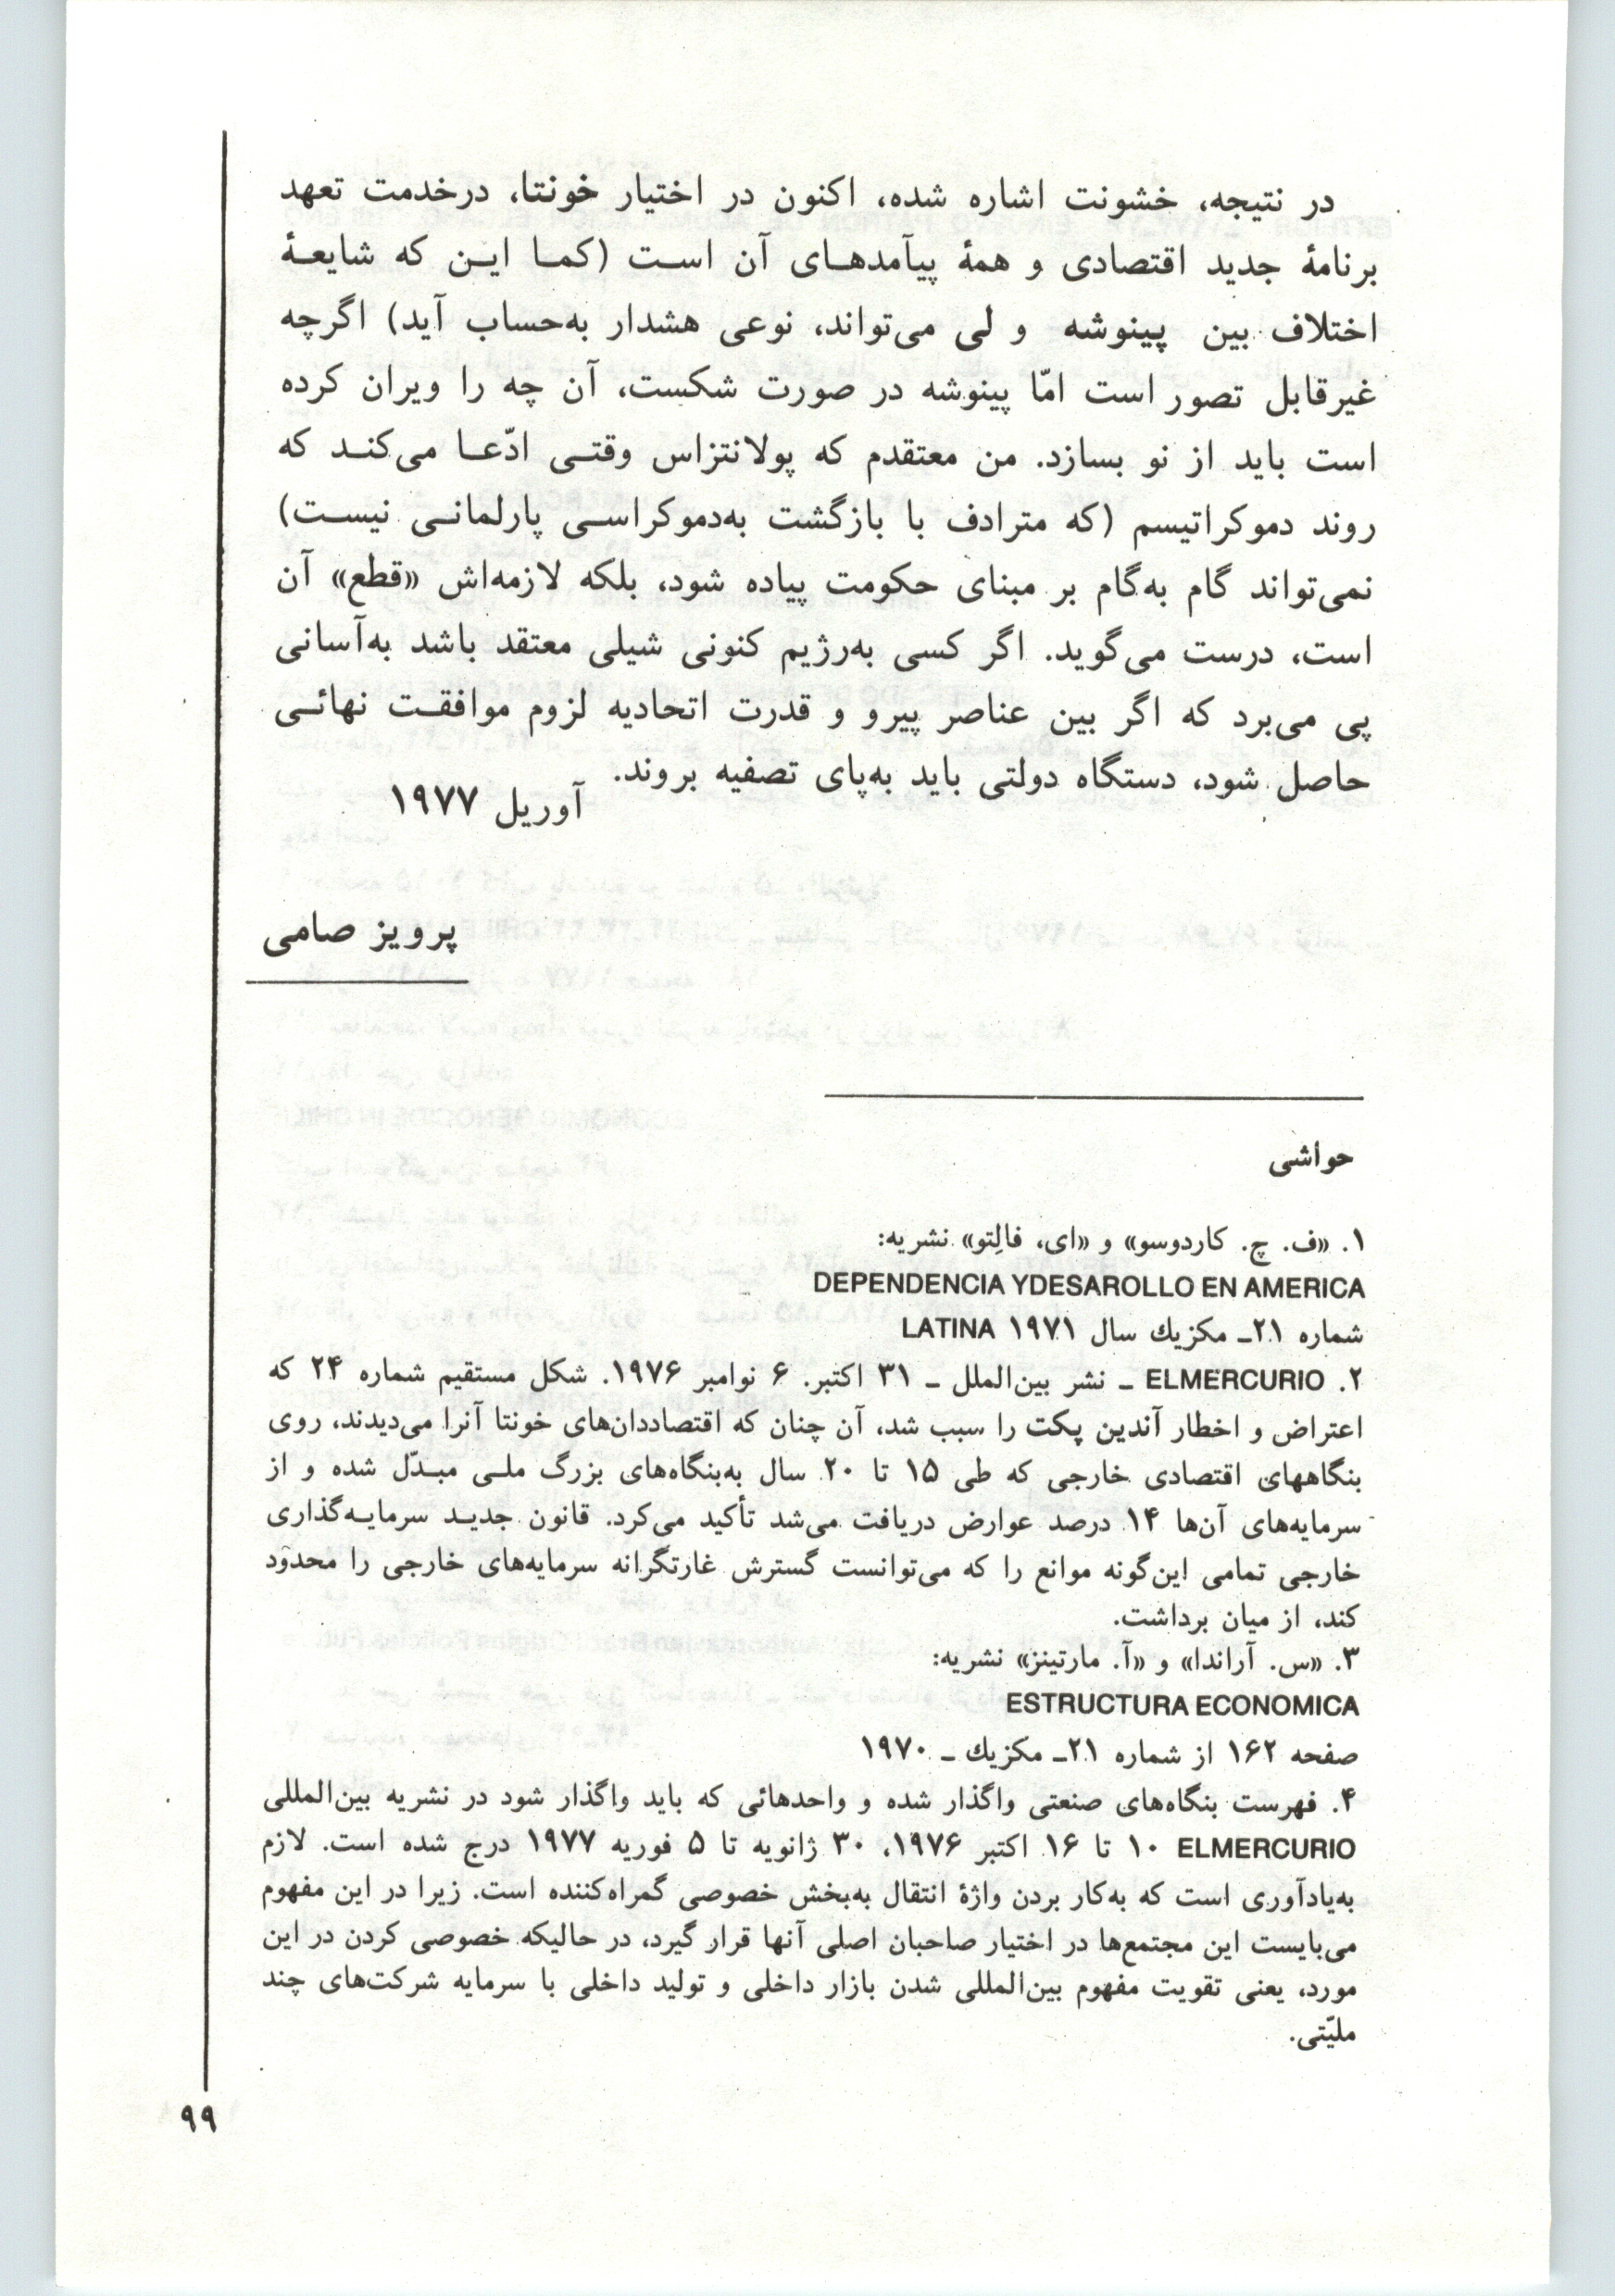 در نتیجه، خشونت اشاره شده، اکنون در اختیار خونتا، درخدمت تعهد
برنامهٔ جدید اقتصادی و همهٔ پیآمدهای آن است (کما این که شایعهٔ
اختلاف بین پینوشه و لی می‌تواند، نوعی هشدار به‌حساب آید) اگرچه
غیرقابل تصور است امّا پینوشه در صورت شکست، آن چه را ویران کرده
است باید از نو بسازد. من معتقدم که پولانتزاس وقتی ادّعا می‌کند که
روند دموکراتیسم (که مترادف با بازگشت به‌دموکراسی پارلمانی نیست)
نمی‌تواند گام به‌گام بر مبنای حکومت پیاده شود، بلکه لازمه‌اش «قطع» آن
است، درست می‌گوید. اگر کسی به‌رژیم کنونی شیلی معتقد باشد به‌آسانی
پی می‌برد که اگر بین عناصر پیرو و قدرت اتحادیه لزوم موافقت نهائی
حاصل شود، دستگاه دولتی باید به‌پای تصفیه بروند.
آوریل ۱۹۷۷
پرویز صامی
حواشی
۱. «ف. چ. کاردوسو» و «ای، فالِتو» نشریه:
DEPENDENCIA YDESAROLLO EN AMERICA
شماره ۲۱ـ مکزیك سال ۱۹۷۱ LATINA
۲. ELMERCURIO ـ نشر بین‌الملل ـ ۳۱ اکتبر. ۶ نوامبر ۱۹۷۶. شکل مستقیم شماره ۲۴ که
اعتراض و اخطار آندین پکت را سبب شد، آن چنان که اقتصاددان‌های خونتا آنرا می‌دیدند، روی
بنگاههای اقتصادی خارجی که طی ۱۵ تا ۲۰ سال به‌بنگاه‌های بزرگ ملی مبدّل شده و از
سرمایه‌های آن‌ها ۱۴ درصد عوارض دریافت می‌شد تأکید می‌کرد. قانون جدید سرمایه‌گذاری
خارجی تمامی این‌گونه موانع را که می‌توانست گسترش غارتگرانه سرمایه‌های خارجی را محدود
کند، از میان برداشت.
۳. «س. آراندا» و «آ. مارتینز» نشریه:
ESTRUCTURA ECONOMICA
صفحه ۱۶۲ از شماره ۲۱ـ مکزیك ـ ۱۹۷۰
۴. فهرست بنگاه‌های صنعتی واگذار شده و واحدهائی که باید واگذار شود در نشریه بین‌المللی
ELMERCURIO ۱۰ تا ۱۶ اکتبر ۱۹۷۶، ۳۰ ژانویه تا ۵ فوریه ۱۹۷۷ درج شده است. لازم
به‌یادآوری است که به‌کار بردن واژهٔ انتقال به‌بخش خصوصی گمراه‌کننده است. زیرا در این مفهوم
می‌بایست این مجتمع‌ها در اختیار صاحبان اصلی آنها قرار گیرد، در حالیکه خصوصی کردن در این
مورد، یعنی تقویت مفهوم بین‌المللی شدن بازار داخلی و تولید داخلی با سرمایه شرکت‌های چند
ملیّتی.
۹۹